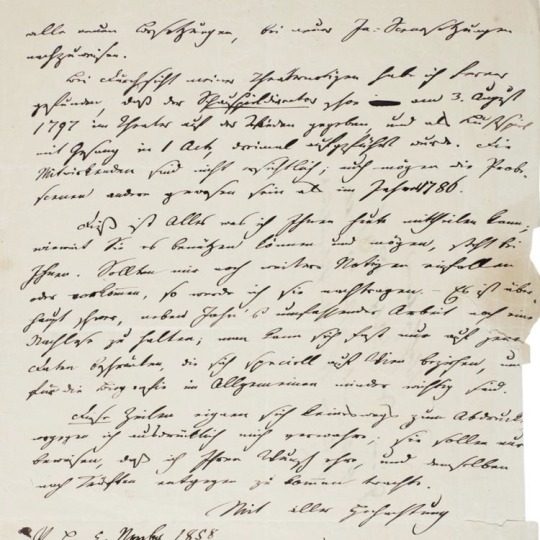 alle neuen Besetzungen, bei neuer In-Scenesetzungen
nachzuweisen.
Bei Durchsicht meiner Theaternotizen habe ich ferner
gefunden, daß der Schauspieldirector schon am 3. August
1797 im Theater auf der Wieden gegeben, und als Lustspiel
mit Gesang in 1 Act, dreimal aufgeführt wurde. Die
Mitwirkenden sind nicht ersichtlich; auch mögen die Probe-
scenen andere gewesen sein als im Jahre 1786.
Dieß ist Alles was ich Ihnen heute mittheilen kann,
wieweit Sie es benützen können und mögen, steht bei
Ihnen. Sollten mir noch weitere Notizen einfallen
oder vorkommen, so werde ich sie nachtragen. – Es ist über-
haupt schwer, neben Jahn's umfassender Arbeit noch eine
Nachlese zu halten; man kann sich fast nur auf jene
Daten beschränken, die sich speciell auf Wien beziehen, und
für die Biografie im Allgemeinen minder wichtig sind.
Diese Zeilen eignen sich keineswegs zum Abdruck,
wogegen ich ausdrücklich mich verwahre; sie sollen nur
beweisen, daß ich Ihren Wunsch ehre, und demselben
nach Kräften entgegen zu kommen trachte.
Mit aller Hochachtung
5. Novbr 1858